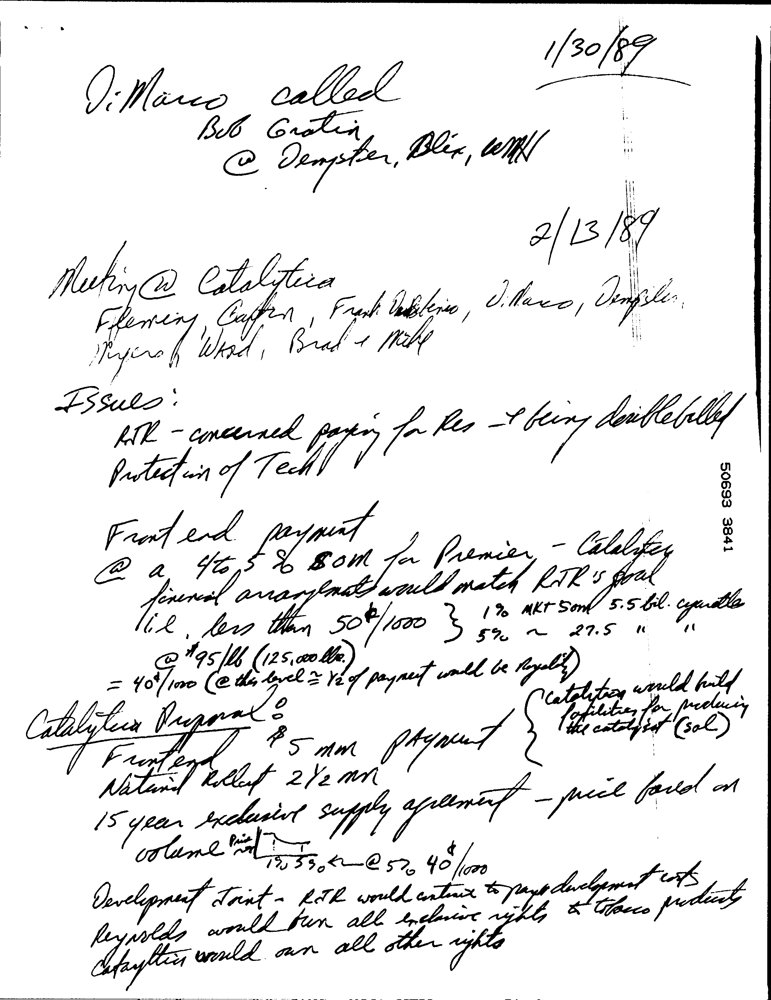 1/30/89
DiMarco called
Bob Gratin
@ Dempster, Blix, WMH
2/13/89
Meeting @ Catalytica
Fleming, Frank, DiMarco, Dempster,
Myers, Ward, Brad & Mike
Issues:
RJR - concerned paying for Res & being doublebilled
Protection of Tech
Front end payment
@ a 4 to 5% SOM for Premier - Catalytica
financial arrangements would match RJR's goal
i.e. less than 50¢/1000 } 1% MKT Som 5.5 bil. cigarettes
5% ~ 27.5 " "
@ $95/lb (125,000 lbs.)
= 40¢/1000 (@ this level ≅ 1/2 of payment would be Royalty)
Catalytica Proposal:
{ Catalytica would build
facilities for producing
the catalyst (sol)
Frontend $5 mm payment
National Rollout 2 1/2 mm
15 year exclusive supply agreement - price based on
volume Price 1% 5% ← @ 5% 40¢/1000
Development Joint - RJR would continue to pay development costs
Reynolds would own all exclusive rights to tobacco products
Catalytica would own all other rights
50693 3841